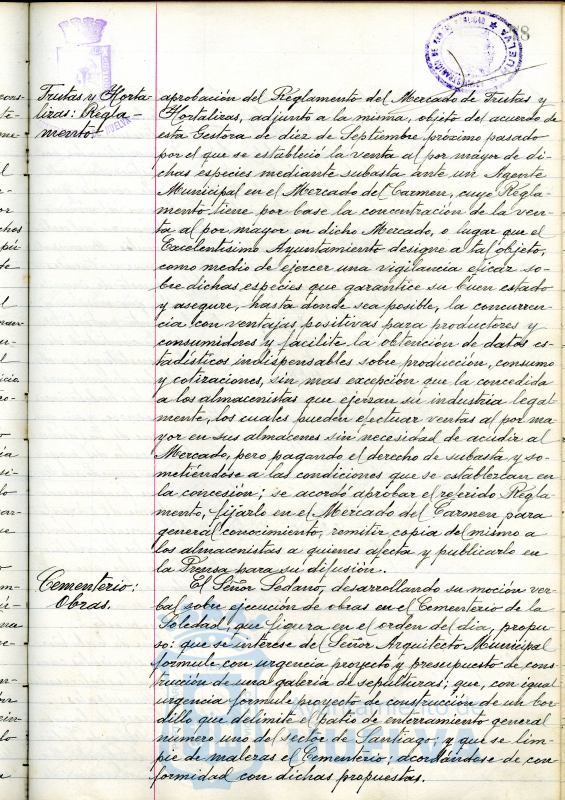 78
Frutas y Horta-
lizas: Regla-
mento.
aprobación del Reglamento del Mercado de Frutas y
Hortalizas, adjunto a la misma, objeto del acuerdo de
esta Gestora de diez de Septiembre próximo pasado
por el que se estableció la venta al por mayor de di-
chas especies mediante subasta ante un Agente
Municipal en el Mercado del Carmen, cuyo Regla-
mento tiene por base la concentración de la ven-
ta al por mayor en dicho Mercado, o lugar que el
Excelentísimo Ayuntamiento designe a tal objeto,
como medio de ejercer una vigilancia eficaz so-
bre dichas especies que garantice su buen estado
y asegure, hasta donde sea posible, la concurren-
cia con ventajas positivas para productores y
consumidores y facilite la obtención de datos es-
tadísticos indispensables sobre producción, consumo
y cotizaciones, sin mas excepción que la concedida
a los almacenistas que ejerzan su industria legal-
mente, los cuales pueden efectuar ventas al por ma-
yor en sus almacenes sin necesidad de acudir al
Mercado, pero pagando el derecho de subasta y so-
metiéndose a las condiciones que se establezcan en
la concesión; se acordó aprobar el referido Regla-
mento, fijarlo en el Mercado del Carmen para
general conocimiento, remitir copia del mismo a
los almacenistas a quienes afecta y publicarlo en
la Prensa para su difusión.
Cementerio:
Obras.
El Señor Sedano, desarrollando su moción ver-
bal sobre ejecución de obras en el Cementerio de la
Soledad, que figura en el orden del día, propu-
so: que se interese del Señor Arquitecto Municipal
formule con urgencia proyecto y presupuesto de cons-
trucción de una galería de sepulturas; que, con igual
urgencia formule proyecto de construcción de un bor-
dillo que delimite el patio de enterramiento general
número uno del sector de Santiago; y que se lim-
pie de malezas el Cementerio; acordándose de con-
formidad con dichas propuestas.
Ayuntamiento de
HUELVA